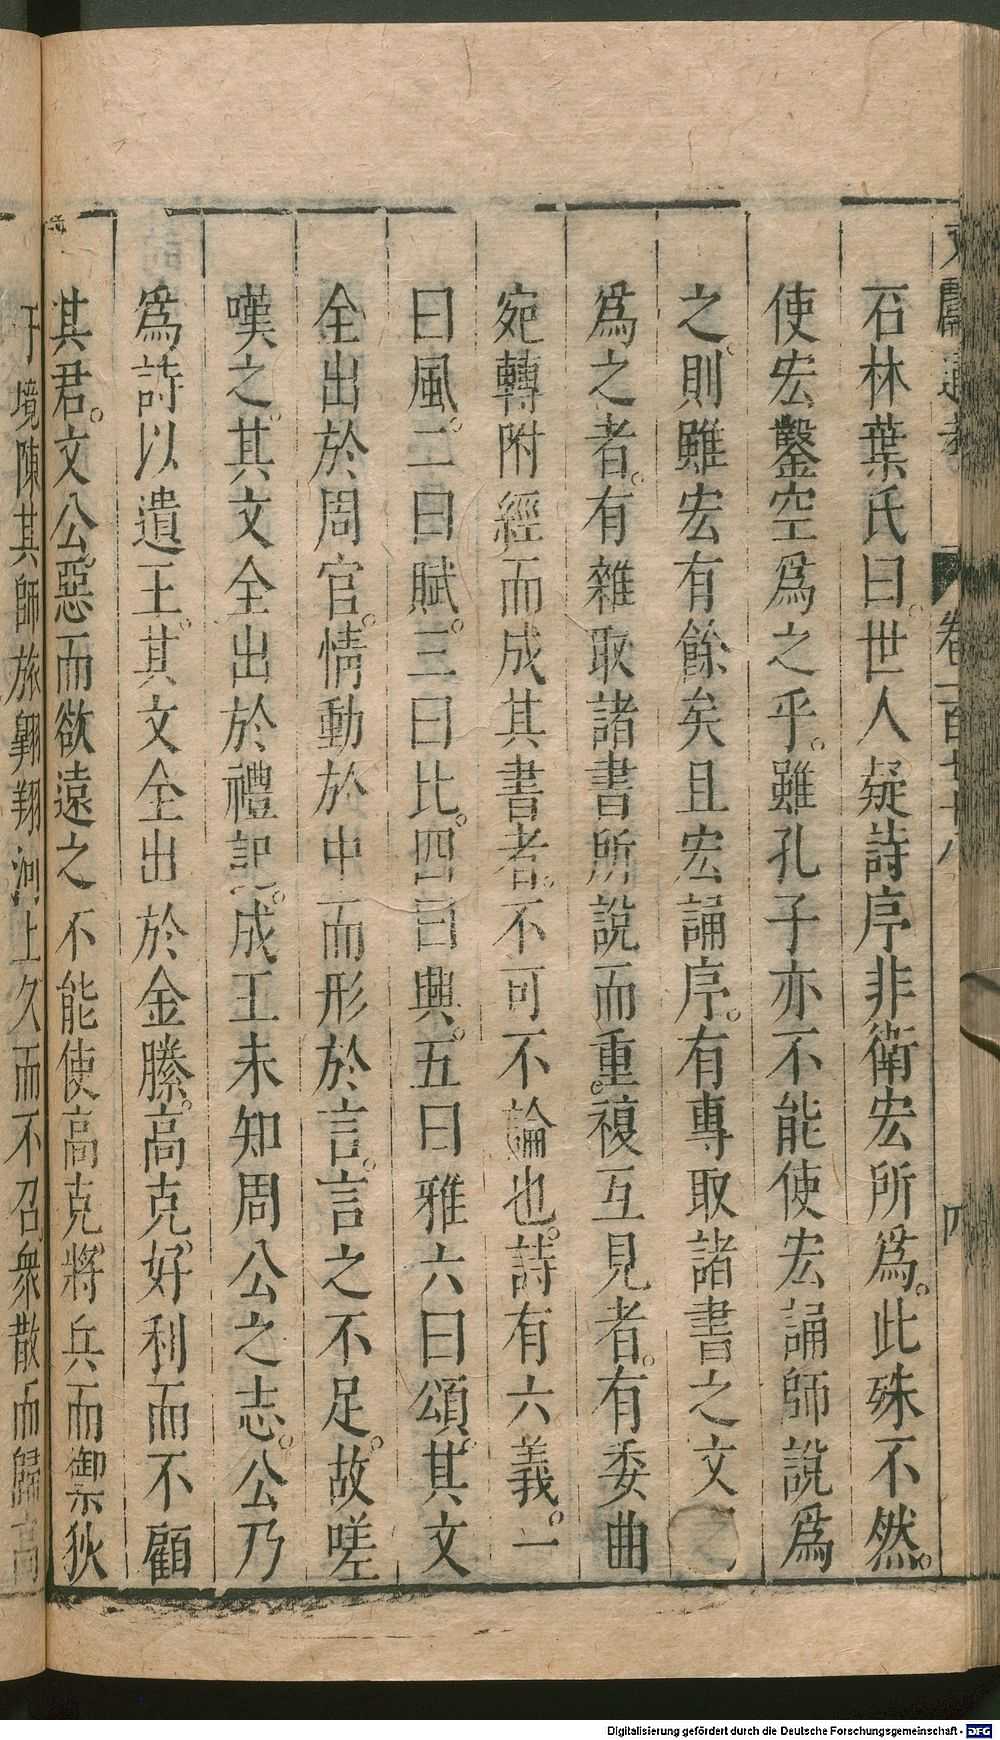 石林葉氏曰。世人疑詩序非衛宏所為。此殊不然。
使宏鑿空為之乎。雖孔子亦不能使宏誦師說為
之。則雖宏有餘矣且宏誦序。有專取諸書之文
為之者。有雜取諸書所說而重。複互見者。有委曲
宛轉附經而成其書者。不可不論也。詩有六義。一
曰風。二曰賦。三曰比。四曰興。五曰雅六曰頌。其文
全出於周官。情動於中而形於言。言之不足。故嗟
嘆之。其文全出於禮記。成王未知周公之志。公乃
為詩以遺王。其文全出於金縢。高克。好利而不顧
其君。文公。惡而欲遠之不能使高克。將兵而禦狄
于境陳其師旅翱翔河上久而不召眾散而歸高
卷一百七十八
四
Digitalisierung gefördert durch die Deutsche Forschungsgemeinschaft - DFG